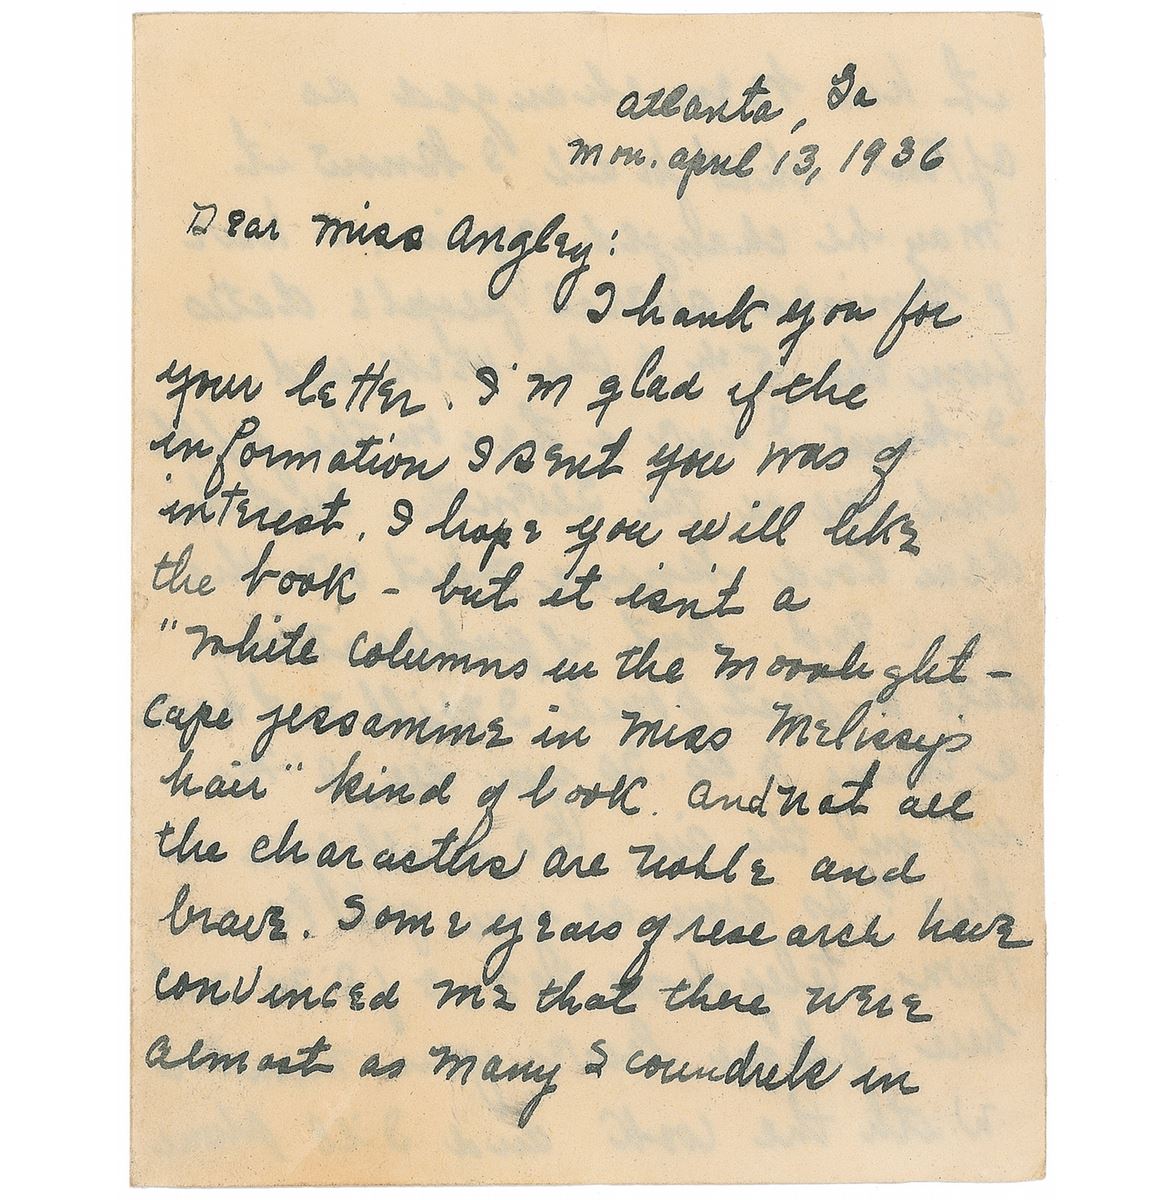 Atlanta, Ga
Mon. April 13, 1936
Dear Miss Angley:
Thank you for
your letter. I'm glad if the
information I sent you was of
interest. I hope you will like
the book - but it isn't a
"White columns in the moonlight -
cape jessamine in Miss Melissy's
hair" kind of book. And not all
the characters are noble and
brave. Some years of research have
convinced me that there were
almost as many scoundrels in